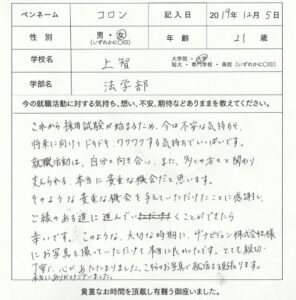 ペンネーム コロン 記入日 2019年12月5日
性別 男・女 (いずれかに○印) 年齢 21歳
学校名 上智 大学院・大学 短大・専門学校・高校(いずれかに○印)
学部名 法学部
今の就職活動に対する気持ち、想い、不安、期待などありままを教えてください。
これから採用試験が始まるため、今は不安な気持ちや、
将来に向けてドキドキ、ワクワクする気持ちでいっぱいです。
就職活動は、自分と向き合い、また、多くの方々と関わり
支えられる、本当に貴重な機会だと思います。
そのような貴重な機会を与えていただけたことに感謝し、
ご縁のある道に進んでいくことができたら
幸いです。このような、大切な時期に、ザナビジョン株式会社様
にお写真を撮っていただけて本当に良かったです。とても親切・
丁寧で、心があたたまりました。このお写真で就活を頑張ります。
本当にありがとうございました。
貴重なお時間を頂戴し有難う御座いました。